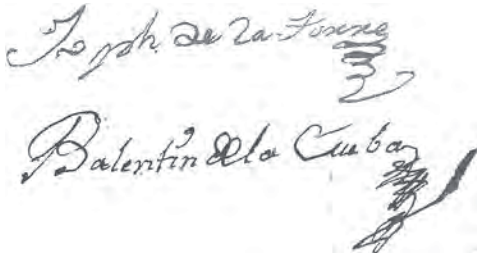 Joseph. de la Torre
Balentin de la Cueba